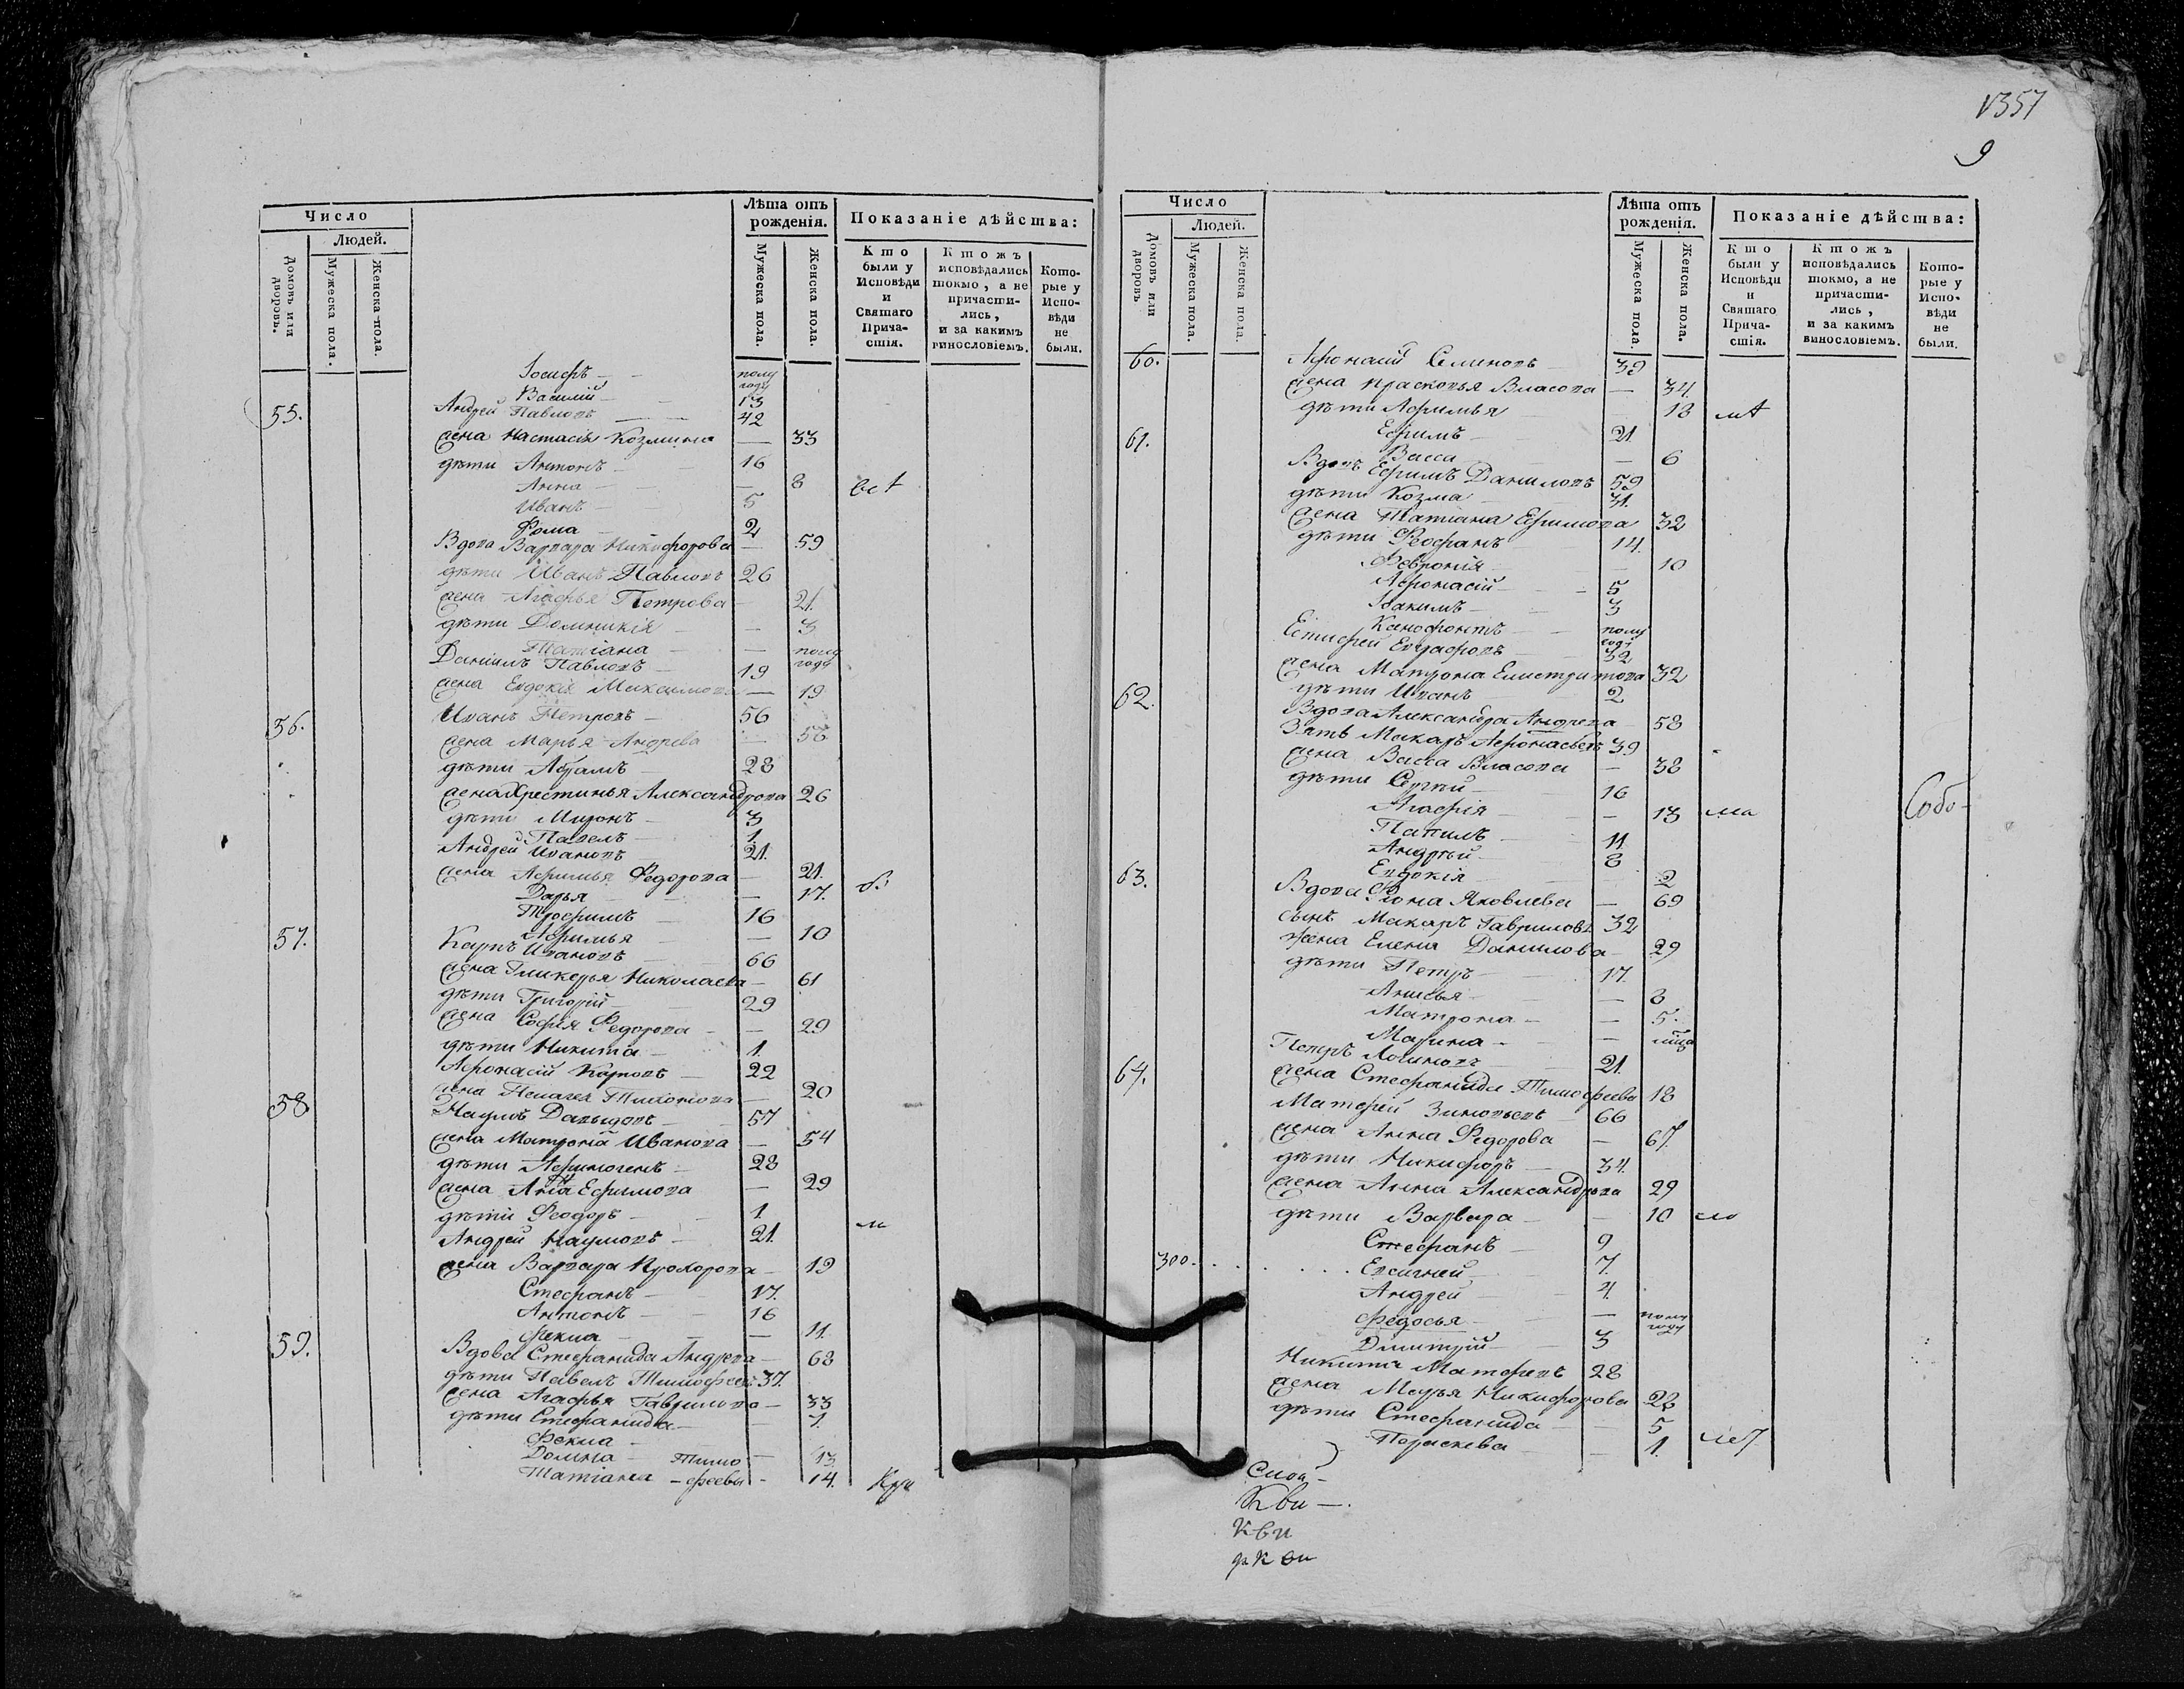 Число
Людей.
Домовъ или дворовъ.
Мужеска пола.
Женска пола.
Лѣта отъ рожденія.
Мужеска пола.
Женска пола.
Показаніе дѣйства:
Кто были у Исповѣди и Святаго Причастія.
Ктожъ исповѣдались токмо, а не причастились, и за какимъ винословіемъ.
Которые у Исповѣди не были.
Іосифъ — полу году
Василій — 13
55. Андрей Павловъ — 42
жена Настасія Козмина — 33
дѣти Антонъ — 16
Анна — 8
Иванъ — 5
Фома — 2
Вдова Варвара Никифорова — 59
дѣти Иванъ Павловъ 26
жена Агафья Петрова — 21.
дѣти Домникія — 3
Татіана — полу года
Даніилъ Павловъ — 19
жена Евдокія Максимова — 19
56. Иванъ Петровъ — 56
жена Марья Андрева — 56
дѣти Абрамъ — 28
жена Хрестинья Александрова 26
дѣти Миронъ — 3
Павелъ — 1.
Андрей Ивановъ 21.
жена Афимья Федорова — 21.
Дарья — 17.
Трофимъ — 16
Афимья — 10
57. Карпъ Ивановъ — 66
жена Гликерья Николаева — 61
дѣти Григорій — 29
жена Софія Федорова — 29
дѣти Никита — 1.
Афонасій Карповъ — 22
жена Пелагея Тихонова — 20
58 Наумъ Давыдовъ — 57
жена Матрона Иванова — 54
дѣти Афиногенъ — 28
жена Анна Ефимова — 29
дѣти Феодоръ — 1.
Андрей Наумовъ — 21.
жена Варвара Прохорова — 19
Стефанъ — 17.
Антонъ — 16
Фекла — 11.
59. Вдова Стефанида Андрева — 68
дѣти Павелъ Тимофеевъ 37.
жена Агафья Гаврилова — 33
дѣти Стефанида — 7.
Фекла —
Домна — Тимо — 13
Татіана — феевы — 14.
357
9
Число
Людей.
Домовъ или дворовъ.
Мужеска пола.
Женска пола.
Лѣта отъ рожденія.
Мужеска пола.
Женска пола.
Показаніе дѣйства:
Кто были у Исповѣди и Святаго Причастія.
Ктожъ исповѣдались токмо, а не причастились, и за какимъ винословіемъ.
Которые у Исповѣди не были.
60. Афонасій Семиновъ 39
жена Прасковья Власова — 34.
дѣти Афимья — 18
Ефимъ — 21
61. Васса — 6
Вдовъ Ефимъ Даниловъ 59
дѣти Козма — 31.
жена Татіана Ефимова 32
дѣти Феофанъ — 14.
Февронія — 10
Афонасій — 5
Іоакимъ — 3
Ксенофонтъ — полу года
Естифей Евграфовъ 32
жена Матрона Елистратова 32
62. дѣти Иванъ 2
Вдова Александра Андрева — 58
Зять Макаръ Афонасьевъ 39
жена Васса Власова — 38
дѣти Сергѣй — 16
Агафія — 13
Собо-
Папилъ — 11
Андрѣй — 8
Евдокія — 2
63. Вдова Фіона Яковлева — 69
сынъ Макаръ Гавриловъ 32
жена Елена Данилова — 29
дѣти Петръ — 17.
Анисья — 8
Матрона — 5.
Марина —
Петръ Логиновъ 21.
64. жена Стефанида Тимофеева 18
Матфей Зиновьевъ 66
жена Анна Федорова — 67.
дѣти Никифоръ — 34.
жена Анна Александрова 29
дѣти Варвара — 10
Стефанъ — 9
300. Евсигней — 7.
Андрей — 4.
Федосья — полу году
Димитрій — 3
Никита Матфевъ 28
жена Марья Никифорова 28
дѣти Стефанида — 5
Параскева — 1.